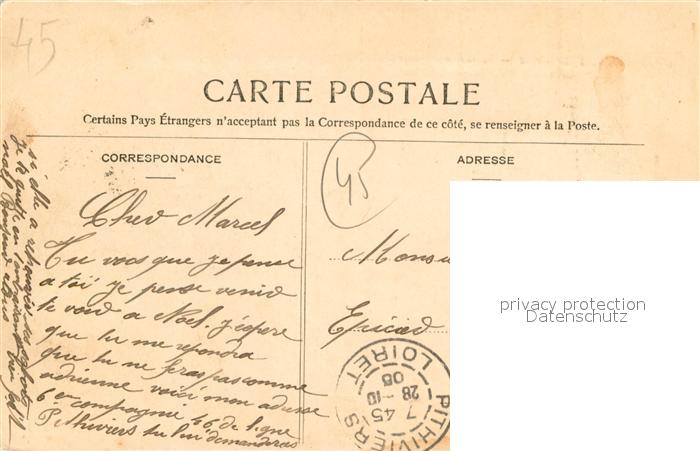 45
CARTE POSTALE
Certains Pays Étrangers n'acceptant pas la Correspondance de ce côté, se renseigner à la Poste.
CORRESPONDANCE
ADRESSE
45
Cher Marcel
Tu vois que je pense
a toi je pense venir
te voir a Noel. j'espere
que tu me repondra
que tu ne feras pas comme
adrienne voici mon adresse
6e compagnie 46 de ligne
Pithiviers tu lui demanderas
si elle a
Je te quitte en
Monsi
Epicier
PITHIVIERS
LOIRET
7 45
28-10
05
privacy protection
Datenschutz